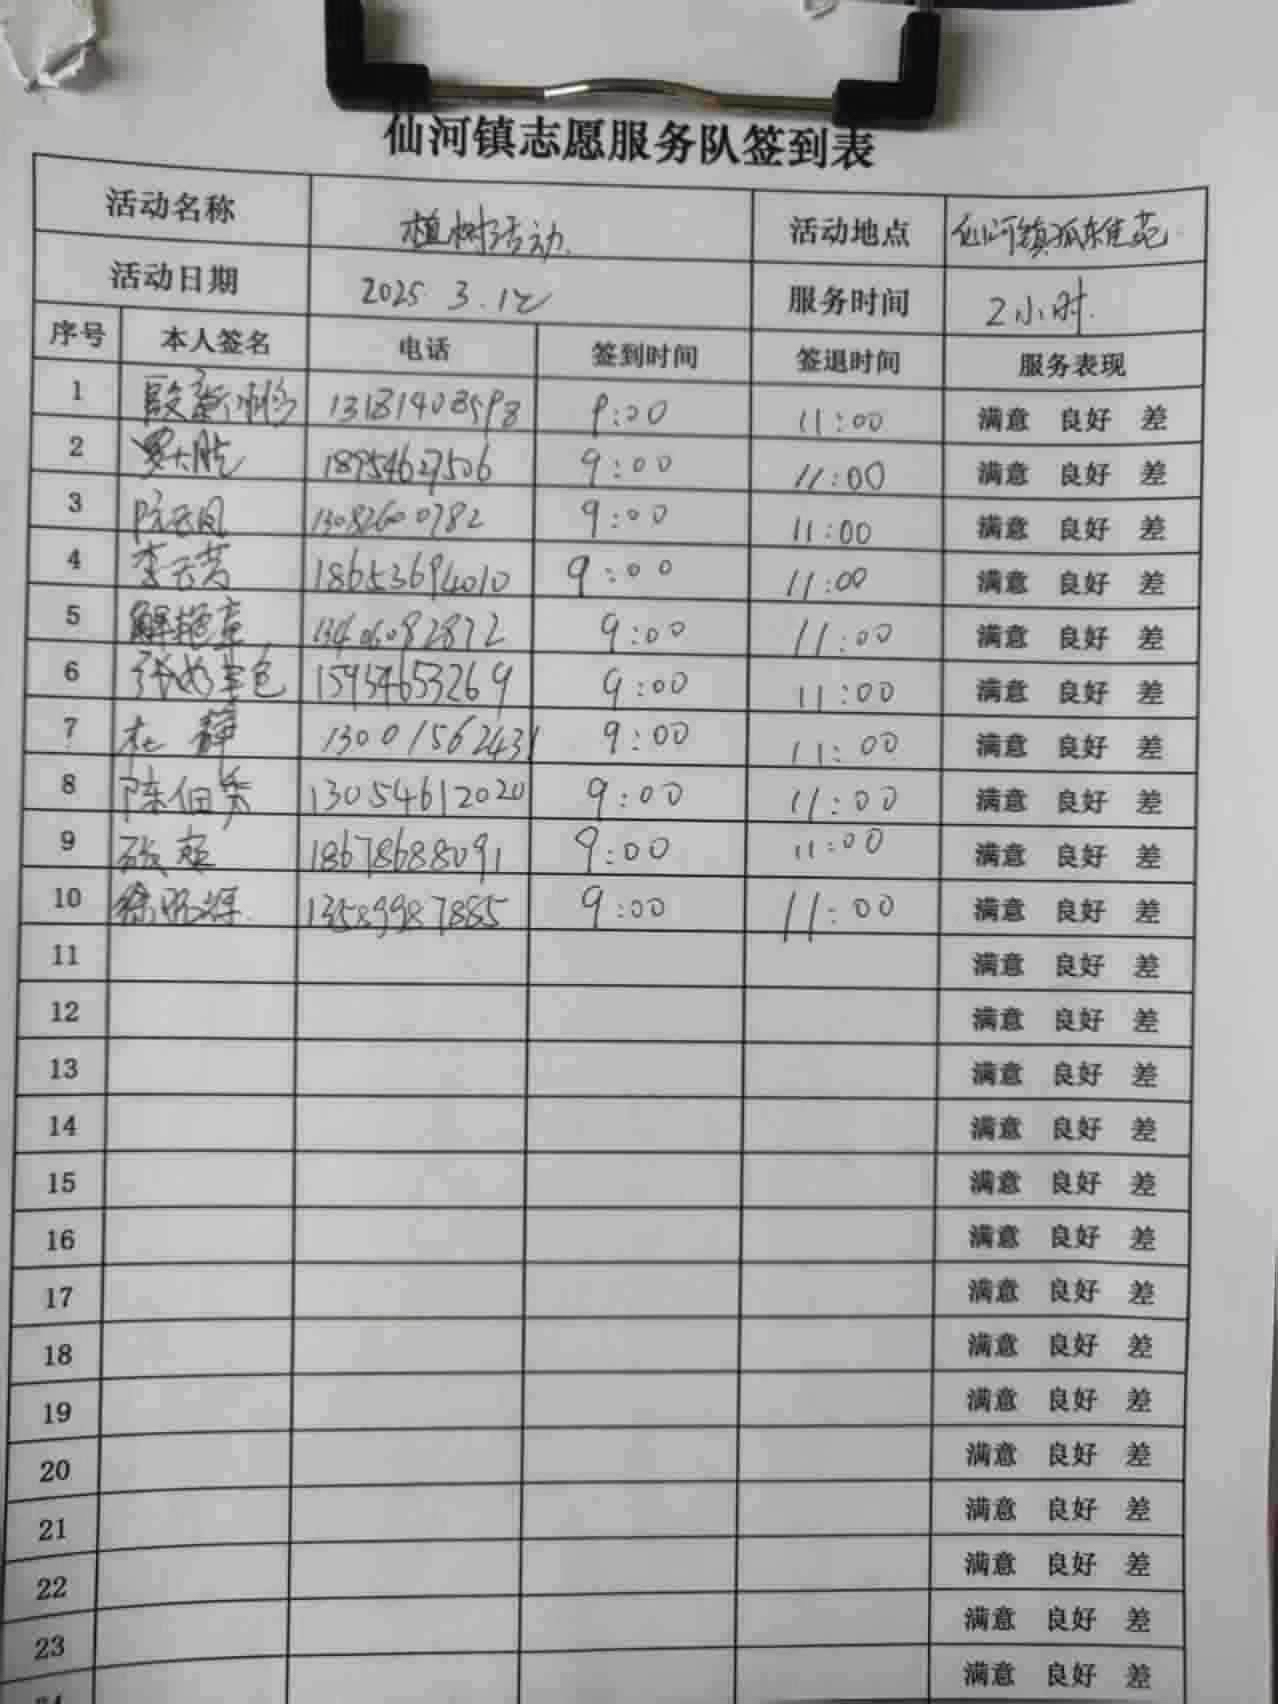 仙河镇志愿服务队签到表
活动名称 植树活动. 活动地点 仙河镇孤东
活动日期 2025 3.12 服务时间 2小时.
序号 本人签名 电话 签到时间 签退时间 服务表现
1 13181408598 9:00 11:00 满意 良好 差
2 18954627506 9:00 11:00 满意 良好 差
3 13082600782 9:00 11:00 满意 良好 差
4 李云芳 18653694010 9:00 11:00 满意 良好 差
5 解艳章 13406092872 9:00 11:00 满意 良好 差
6 15954653269 9:00 11:00 满意 良好 差
7 杜静 13001562431 9:00 11:00 满意 良好 差
8 陈伯秀 13054612020 9:00 11:00 满意 良好 差
9 18678688091 9:00 11:00 满意 良好 差
10 13589987885 9:00 11:00 满意 良好 差
11 满意 良好 差
12 满意 良好 差
13 满意 良好 差
14 满意 良好 差
15 满意 良好 差
16 满意 良好 差
17 满意 良好 差
18 满意 良好 差
19 满意 良好 差
20 满意 良好 差
21 满意 良好 差
22 满意 良好 差
23 满意 良好 差
24 满意 良好 差